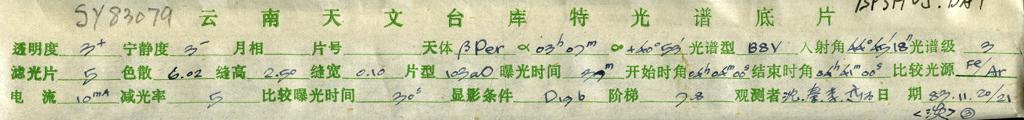 SY83079 云南天文台库特光谱底片
透明度 3⁺ 宁静度 3⁻ 月相 片号 天体 βPer α 03ʰ07ᵐ 光谱型 B8V 入射角 光谱级 3
滤光片 5 色散 6.02 缝高 2.50 缝宽 0.10 片型 103aO 曝光时间 开始时角 结束时角 比较光源 Fe/Ar
电流 10mA 减光率 5 比较曝光时间 30ˢ 显影条件 D19b 阶梯 7.8 观测者 日期 83.11.20/21